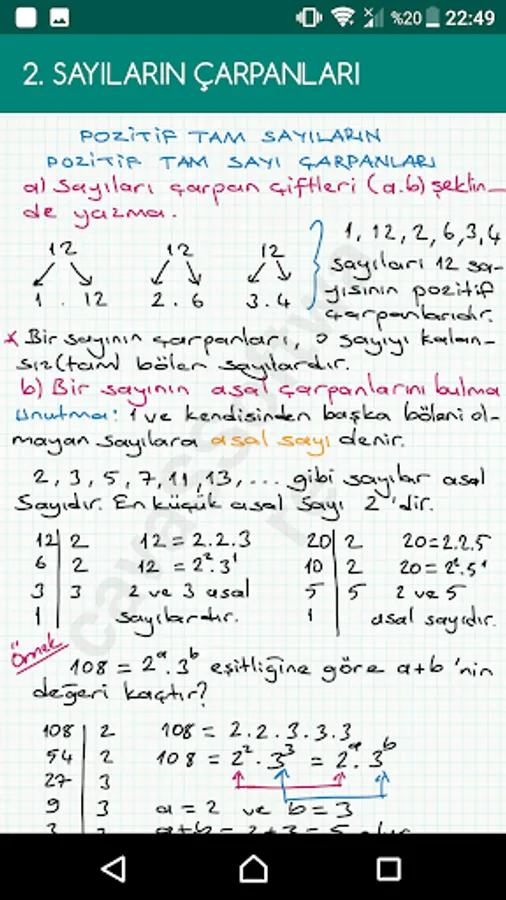 %20 22:49
2. SAYILARIN ÇARPANLARI
POZİTİF TAM SAYILARIN
POZİTİF TAM SAYI ÇARPANLARI
a) Sayıları çarpan çiftleri (a.b) şeklin-
de yazma.
12 12 12
1 . 12 2 . 6 3 . 4
1, 12, 2, 6, 3, 4
sayıları 12 sa-
yısının pozitif
çarpanlarıdır.
* Bir sayının çarpanları, o sayıyı kalan-
sız(tam) bölen sayılardır.
b) Bir sayının asal çarpanlarını bulma
Unutma: 1 ve kendisinden başka böleni ol-
mayan sayılara asal sayı denir.
2, 3, 5, 7, 11, 13, ... gibi sayılar asal
sayıdır. En küçük asal sayı 2'dir.
12 | 2 12 = 2.2.3 20 | 2 20=2.2.5
6 | 2 12 = 2².3¹ 10 | 2 20=2².5¹
3 | 3 2 ve 3 asal 5 | 5 2 ve 5
1 | sayılardır. 1 | asal sayıdır.
Örnek
108 = 2ᵃ.3ᵇ eşitliğine göre a+b 'nin
değeri kaçtır?
108 | 2 108 = 2.2.3.3.3
54 | 2 108 = 2².3³ = 2ᵃ.3ᵇ
27 | 3
9 | 3 a = 2 ve b = 3
3 | 3 a+b = 2+3 = 5 olur
cavassoftware